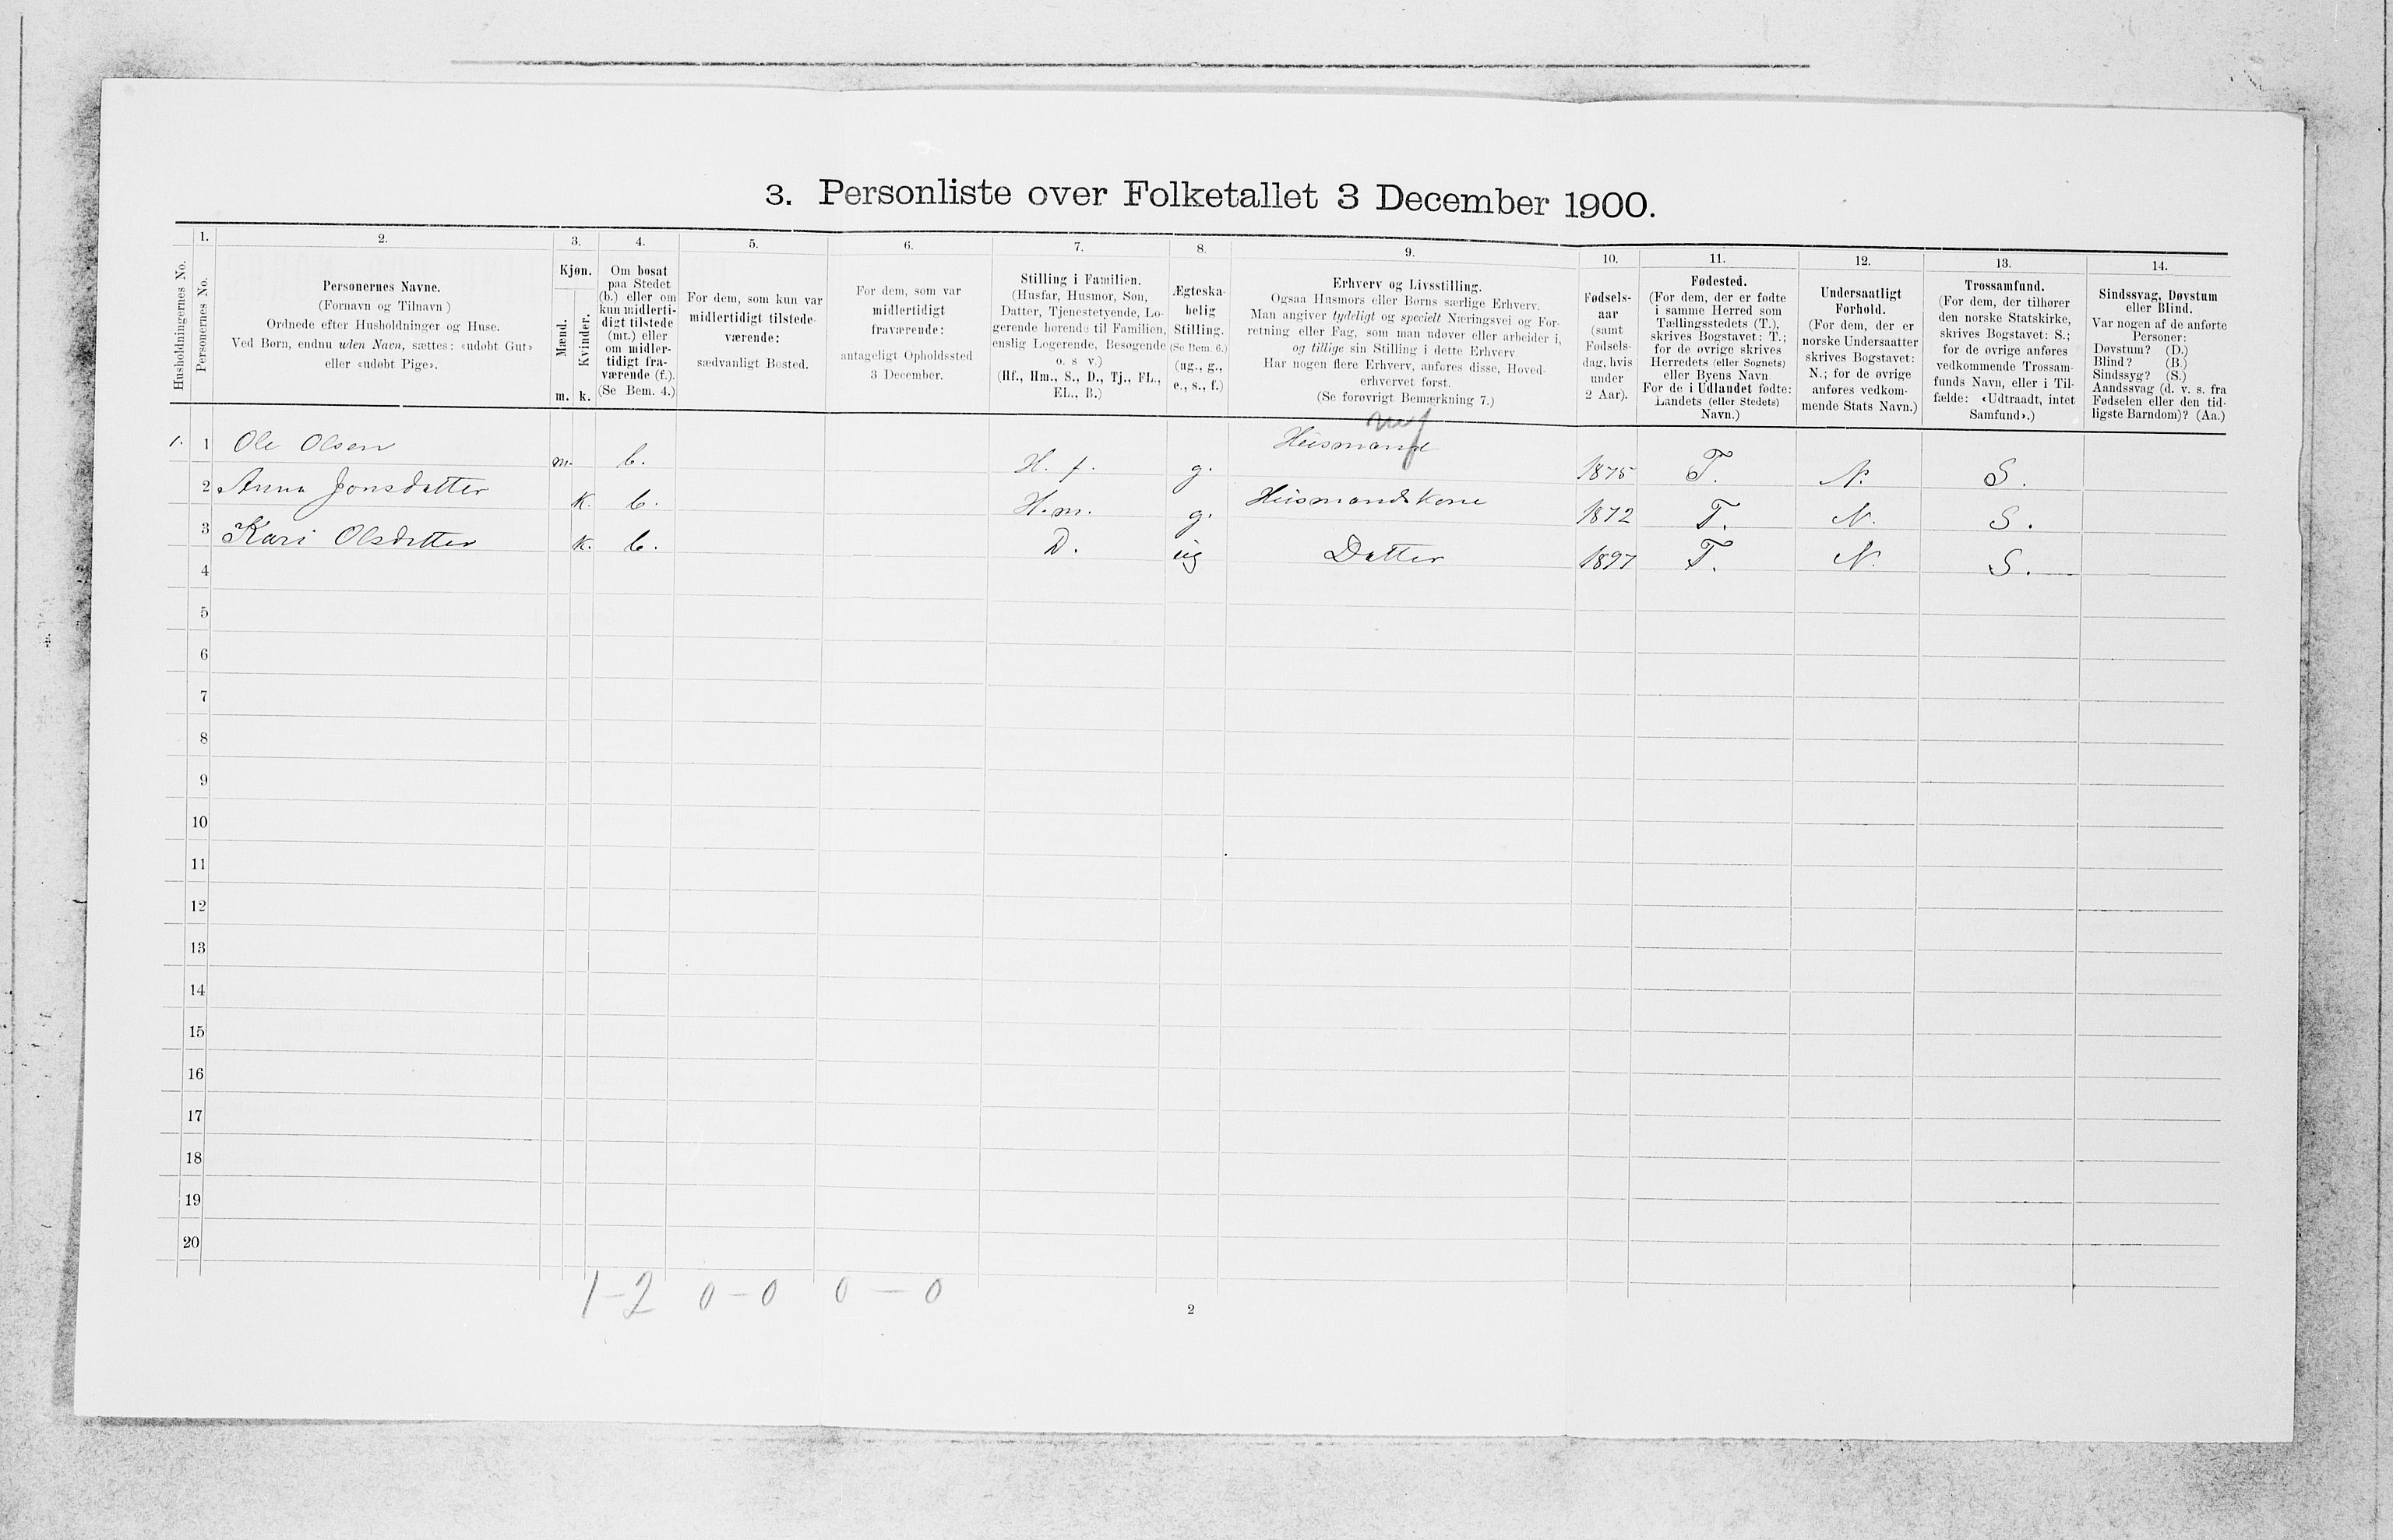 3. Personliste over Folketallet 3 December 1900.
Husholdningernes No.
1.
Personernes No.
2.
Personernes Navne.
(Fornavn og Tilnavn)
Ordnede efter Husholdninger og Huse.
Ved Børn, endnu uden Navn, sættes: «udøbt Gut»
eller «udøbt Pige».
3.
Kjøn.
Mænd.
m.
Kvinder.
k.
4.
Om bosat
paa Stedet
(b.) eller om
kun midlerti-
digt tilstede
(mt.) eller
om midler-
tidigt fra-
værende (f.).
(Se Bem. 4.)
5.
For dem, som kun var
midlertidigt tilstede-
værende:
sædvanligt Bosted.
6.
For dem, som var
midlertidigt
fraværende:
antageligt Opholdssted
3 December.
7.
Stilling i Familien.
(Husfar, Husmor, Søn,
Datter, Tjenestetyende, Lo-
gerende hørende til Familien,
enslig Logerende, Besøgende
o. s v.)
(Hf., Hm., S., D., Tj., FL.,
EL., B.)
8.
Ægteska-
belig
Stilling.
(Se Bem. 6.)
(ug., g.,
e., s., f.)
9.
Erhverv og Livsstilling.
Ogsaa Husmors eller Børns særlige Erhverv.
Man angiver tydeligt og specielt Næringsvei og For-
retning eller Fag, som man udøver eller arbeider i,
og tillige sin Stilling i dette Erhverv
Har nogen flere Erhverv, anføres disse, Hoved-
erhvervet først.
(Se forøvrigt Bemærkning 7.)
10.
Fødsels-
aar
(samt
Fødsels-
dag, hvis
under
2 Aar).
11.
Fødested.
(For dem, der er fødte
i samme Herred som
Tællingsstedets (T.),
skrives Bogstavet: T.;
for de øvrige skrives
Herredets (eller Sognets)
eller Byens Navn
For de i Udlandet fødte:
Landets (eller Stedets)
Navn.)
12.
Undersaatligt
Forhold.
(For dem, der er
norske Undersaatter
skrives Bogstavet:
N.; for de øvrige
anføres vedkom-
mende Stats Navn.)
13.
Trossamfund.
(For dem, der tilhører
den norske Statskirke,
skrives Bogstavet: S.;
for de øvrige anføres
vedkommende Trossam-
funds Navn, eller i Til-
fælde: «Udtraadt, intet
Samfund».)
14.
Sindssvag, Døvstum
eller Blind.
Var nogen af de anførte
Personer:
Døvstum? (D.)
Blind? (B.)
Sindssyg? (S.)
Aandssvag (d. v. s. fra
Fødselen eller den tid-
ligste Barndom)? (Aa.)
1. 1 Ole Olsen m. b. H. f. g. Husmand 1875 T. N. S.
2 Anna Jonsdatter k. b. H. m. g. Husmandskone 1872 T. N. S.
3 Kari Olsdatter k. b. D. ug Datter 1897 T. N. S.
4
5
6
7
8
9
10
11
12
13
14
15
16
17
18
19
20
1-2 0-0 0-0
2